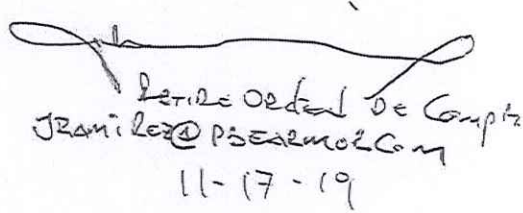 Retire Orden De Compra
JRamiRez@PSEARMOR.Com
11-17-19